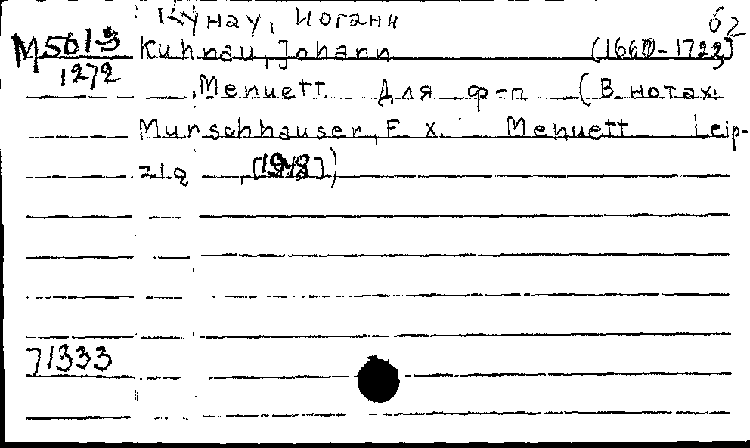 Кунау, Иоганн 62
М5613 Kuhnau, Johann (1660-1722)
1272 Menuett. Для ф-п (В нотах:
Murschhauser, F. X. Menuett Leip-
zig, [1948])
71333